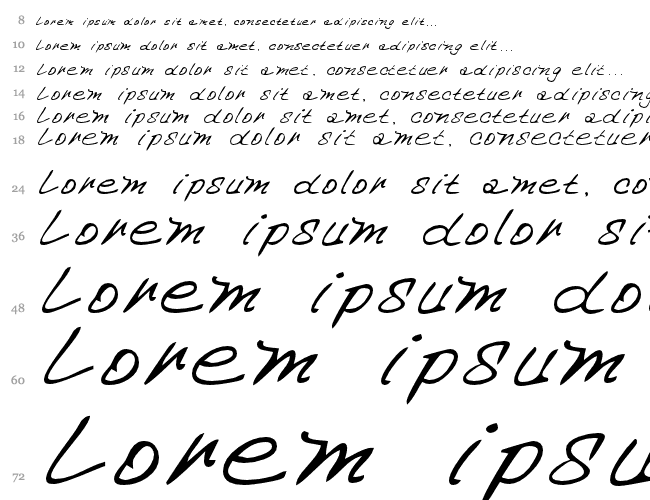 8 Lorem ipsum dolor sit amet, consectetuer adipiscing elit...
10 Lorem ipsum dolor sit amet, consectetuer adipiscing elit...
12 Lorem ipsum dolor sit amet, consectetuer adipiscing elit...
14 Lorem ipsum dolor sit amet, consectetuer adipiscing
16 Lorem ipsum dolor sit amet, consectetuer adipi
18 Lorem ipsum dolor sit amet, consectetuer
24 Lorem ipsum dolor sit amet, co
36 Lorem ipsum dolor si
48 Lorem ipsum do
60 Lorem ipsum
72 Lorem ipsu